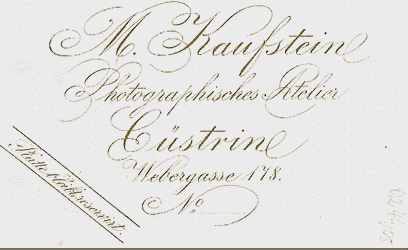 M. Kaufstein
Photographisches Atelier
Cüstrin
Webergasse 178.
No
Platte bleibt reservirt.